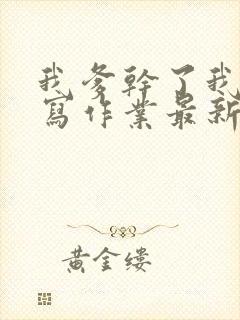 我爹幹了我
寫作業最新
黃金縷